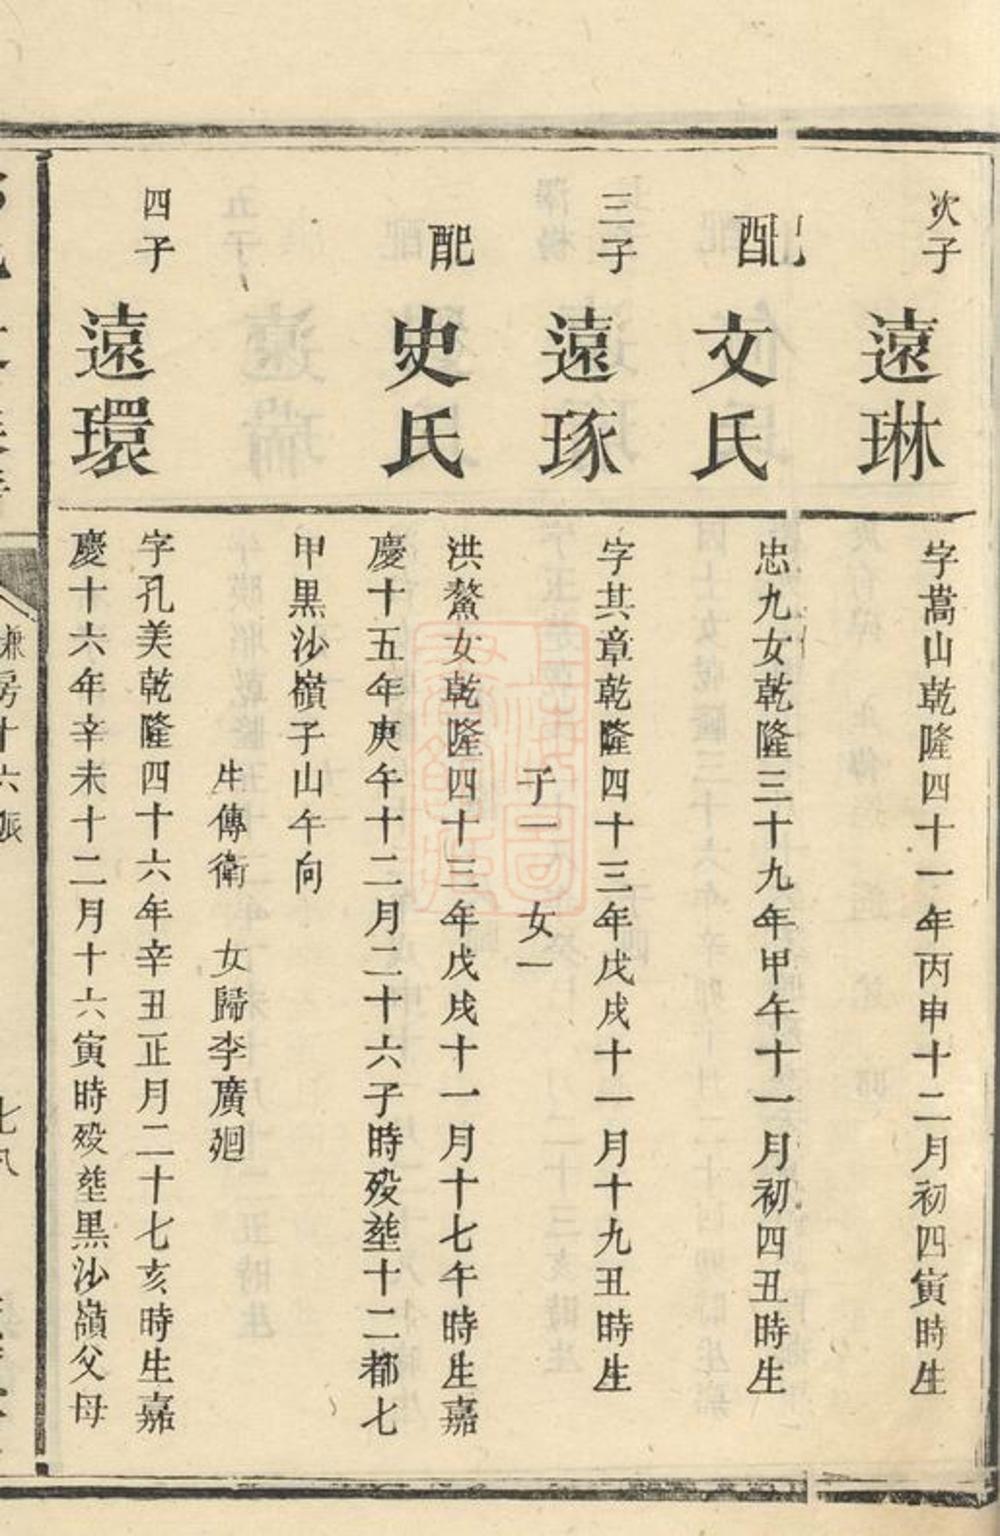 次子
遠琳
字蒿山乾隆四十一年丙申十二月初四寅時生
配
文氏
忠九女乾隆三十九年甲午十一月初四丑時生
三子
遠琢
字其章乾隆四十三年戊戌十一月十九丑時生
子一　女一
配
史氏
洪鰲女乾隆四十三年戊戌十一月十七午時生嘉
慶十五年庚午十二月二十六子時歿塟十二都七
甲黑沙嶺子山午向
生傳衛　女歸李廣廻
四子
遠環
字孔美乾隆四十六年辛丑正月二十七亥時生嘉
慶十六年辛未十二月十六寅時歿塟黑沙嶺父母
房十六派